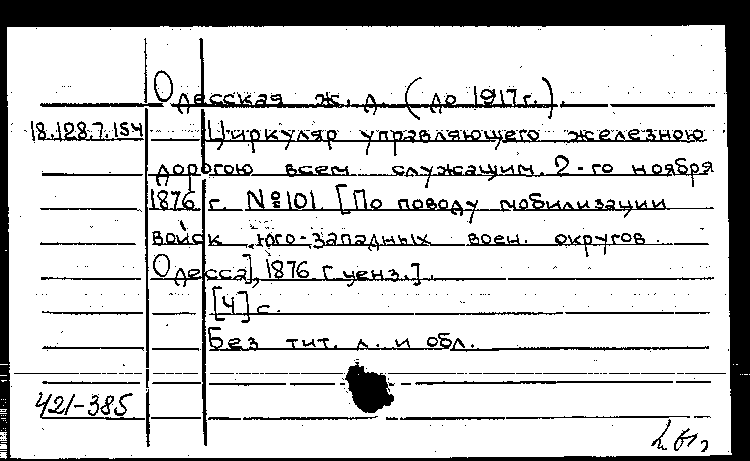 Одесская ж. д. (до 1917г.).
18.128.7.154 Циркуляр управляющего железною
дорогою всем служащим. 2-го ноября
1876 г. №101. [По поводу мобилизации
войск юго-западных воен. округов.
Одесса], 1876 [ценз.].
[4] с.
Без тит. л. и обл.
421-385